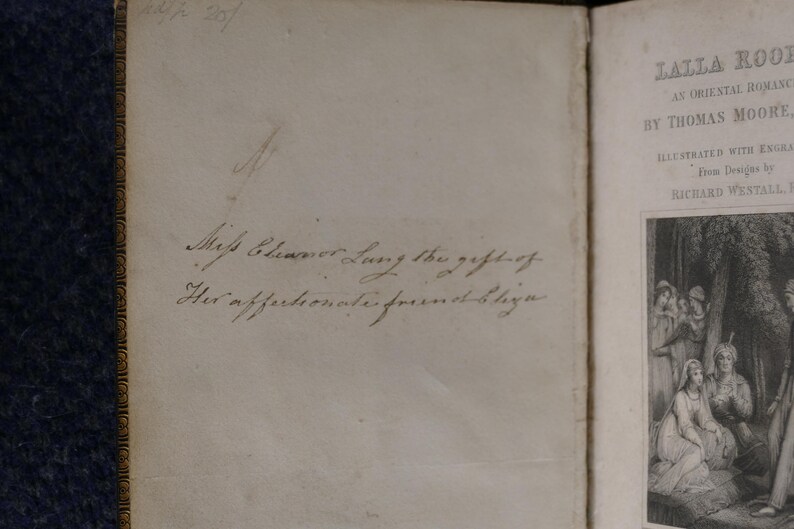 20/
N
Miss Eleanor Lang the gift of
Her affectionate friend Eliza
LALLA ROOK
AN ORIENTAL ROMANC
BY THOMAS MOORE,
ILLUSTRATED WITH ENGRA
From Designs by
RICHARD WESTALL, R